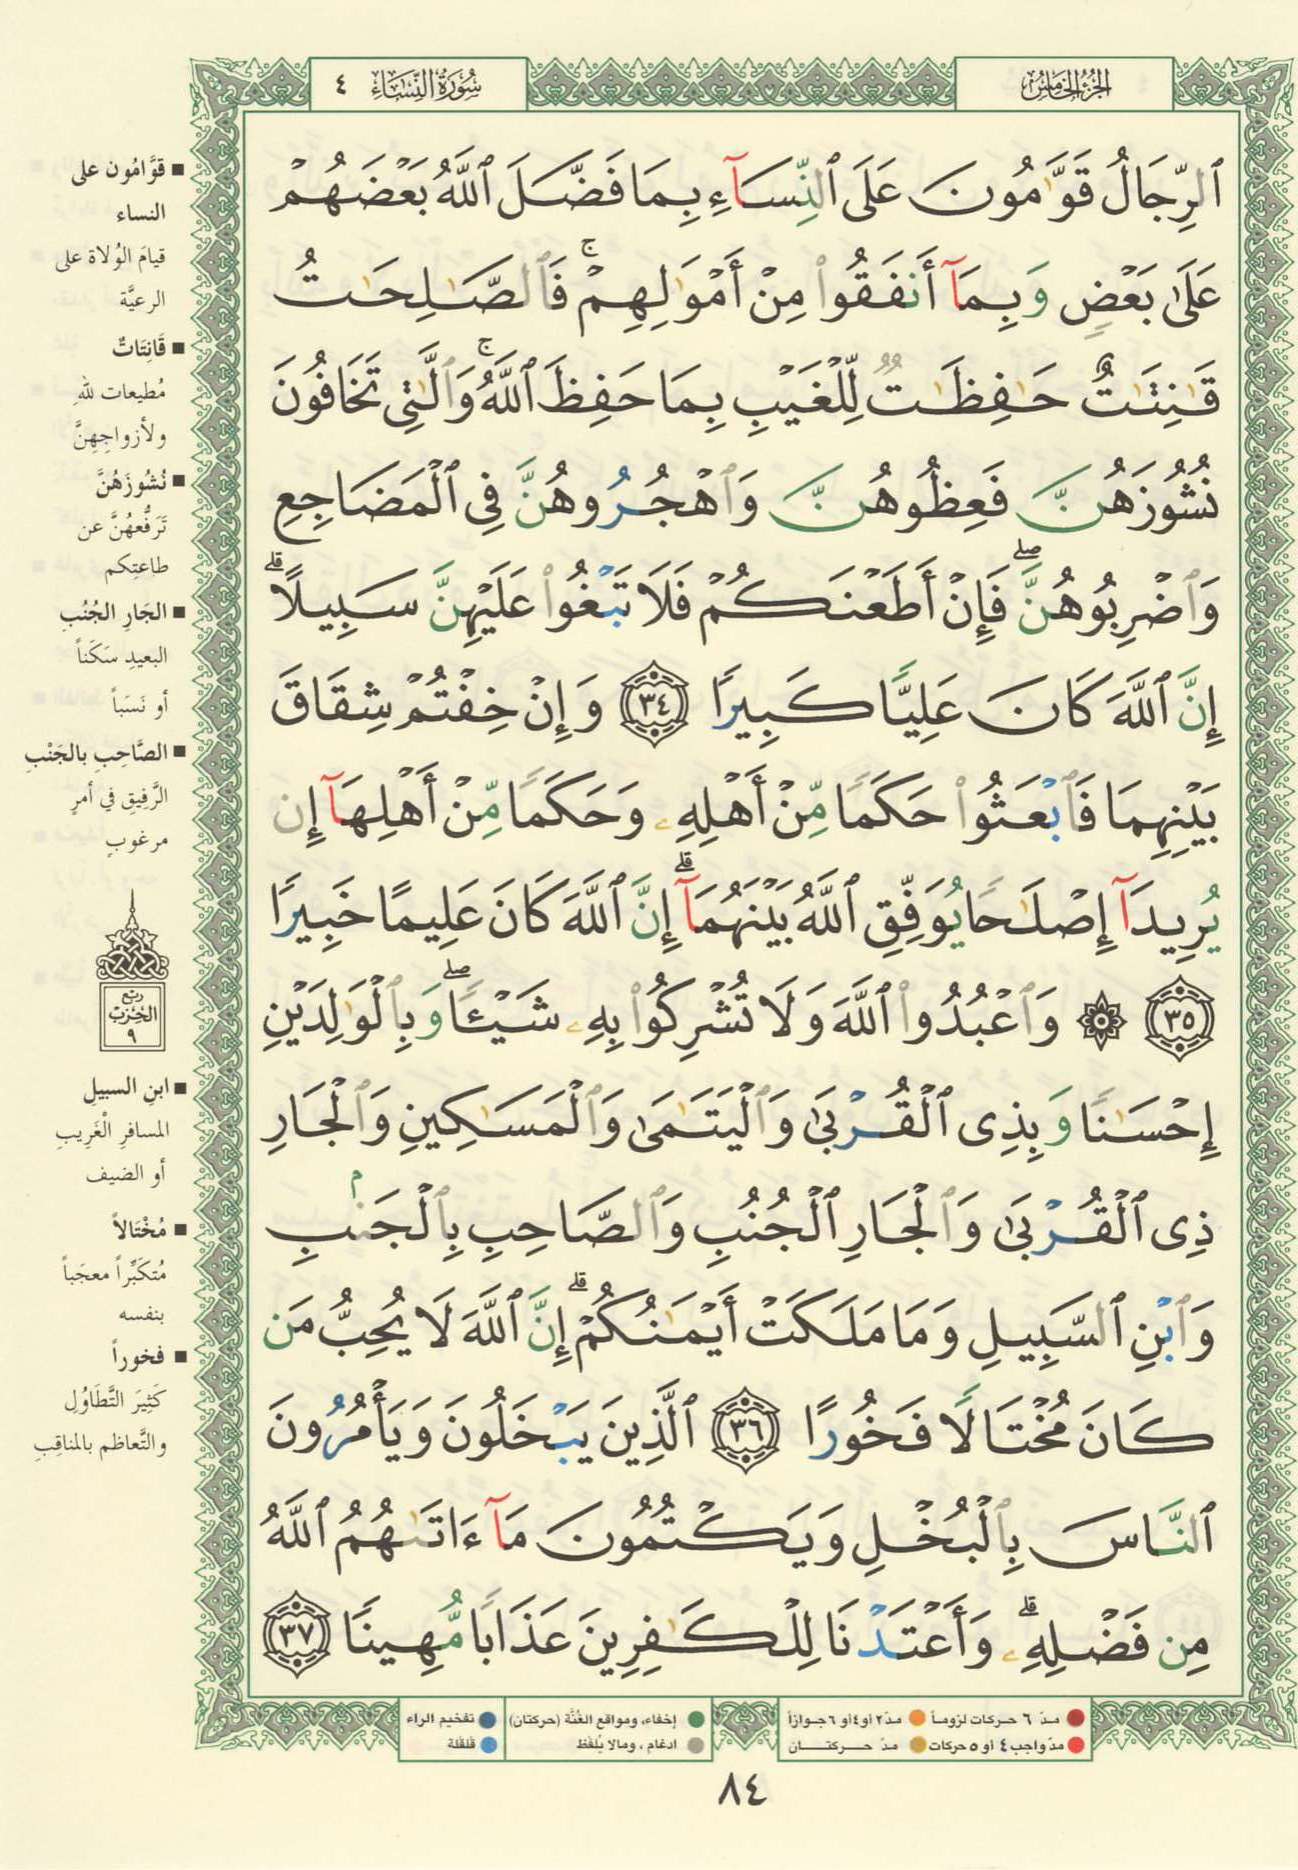 الجزء الخامس
سورة النساء ٤
ٱلرِّجَالُ قَوَّٰمُونَ عَلَى ٱلنِّسَآءِ بِمَا فَضَّلَ ٱللَّهُ بَعْضَهُمْ
عَلَىٰ بَعْضٍ وَبِمَآ أَنفَقُوا۟ مِنْ أَمْوَٰلِهِمْ ۚ فَٱلصَّٰلِحَٰتُ
قَٰنِتَٰتٌ حَٰفِظَٰتٌ لِّلْغَيْبِ بِمَا حَفِظَ ٱللَّهُ ۚ وَٱلَّٰتِى تَخَافُونَ
نُشُوزَهُنَّ فَعِظُوهُنَّ وَٱهْجُرُوهُنَّ فِى ٱلْمَضَاجِعِ
وَٱضْرِبُوهُنَّ ۖ فَإِنْ أَطَعْنَكُمْ فَلَا تَبْغُوا۟ عَلَيْهِنَّ سَبِيلًا ۗ
إِنَّ ٱللَّهَ كَانَ عَلِيًّا كَبِيرًا ٣٤ وَإِنْ خِفْتُمْ شِقَاقَ
بَيْنِهِمَا فَٱبْعَثُوا۟ حَكَمًا مِّنْ أَهْلِهِۦ وَحَكَمًا مِّنْ أَهْلِهَآ إِن
يُرِيدَآ إِصْلَٰحًا يُوَفِّقِ ٱللَّهُ بَيْنَهُمَآ ۗ إِنَّ ٱللَّهَ كَانَ عَلِيمًا خَبِيرًا
٣٥ ۞ وَٱعْبُدُوا۟ ٱللَّهَ وَلَا تُشْرِكُوا۟ بِهِۦ شَيْـًٔا ۖ وَبِٱلْوَٰلِدَيْنِ
إِحْسَٰنًا وَبِذِى ٱلْقُرْبَىٰ وَٱلْيَتَٰمَىٰ وَٱلْمَسَٰكِينِ وَٱلْجَارِ
ذِى ٱلْقُرْبَىٰ وَٱلْجَارِ ٱلْجُنُبِ وَٱلصَّاحِبِ بِٱلْجَنۢبِ
وَٱبْنِ ٱلسَّبِيلِ وَمَا مَلَكَتْ أَيْمَٰنُكُمْ ۗ إِنَّ ٱللَّهَ لَا يُحِبُّ مَن
كَانَ مُخْتَالًا فَخُورًا ٣٦ ٱلَّذِينَ يَبْخَلُونَ وَيَأْمُرُونَ
ٱلنَّاسَ بِٱلْبُخْلِ وَيَكْتُمُونَ مَآ ءَاتَىٰهُمُ ٱللَّهُ
مِن فَضْلِهِۦ ۗ وَأَعْتَدْنَا لِلْكَٰفِرِينَ عَذَابًا مُّهِينًا ٣٧
■ قوَّامُون على
النساء
قيامَ الوُلاة على
الرعيَّة
■ قَانِتَاتٌ
مُطيعات للهِ
ولأزواجِهِنَّ
■ نُشُوزَهُنَّ
تَرَفُّعهُنَّ عن
طاعتِكم
■ الجَارِ الجُنُبِ
البعيدِ سَكَناً
أو نَسَباً
■ الصَّاحِبِ بالجَنْبِ
الرَّفِيقِ في أمرٍ
مرغوبٍ
ربع
الحزب
٩
■ ابنِ السبيلِ
المسافرِ الْغَرِيبِ
أو الضيف
■ مُخْتَالاً
مُتكَبِّراً معجَباً
بنفسه
■ فخوراً
كَثِيرَ التَّطَاوُلِ
والتَّعاظم بالمناقِبِ
مدّ ٦ حركات لزوماً مدّ ٢ أو ٤ أو ٦ جوازاً
مدّ واجب ٤ أو ٥ حركات مدّ حركتان
إخفاء، ومواقع الغُنَّة (حركتان) تفخيم الراء
ادغام، ومالا يُلفَظ قلقلة
٨٤